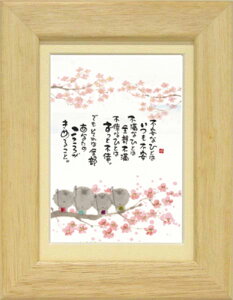 不安なひとは
いつも不安
不満なひとは
全部不満
不信なひとは
ずっと不信
でもどれも全部
あなたの
こころが
きめること。